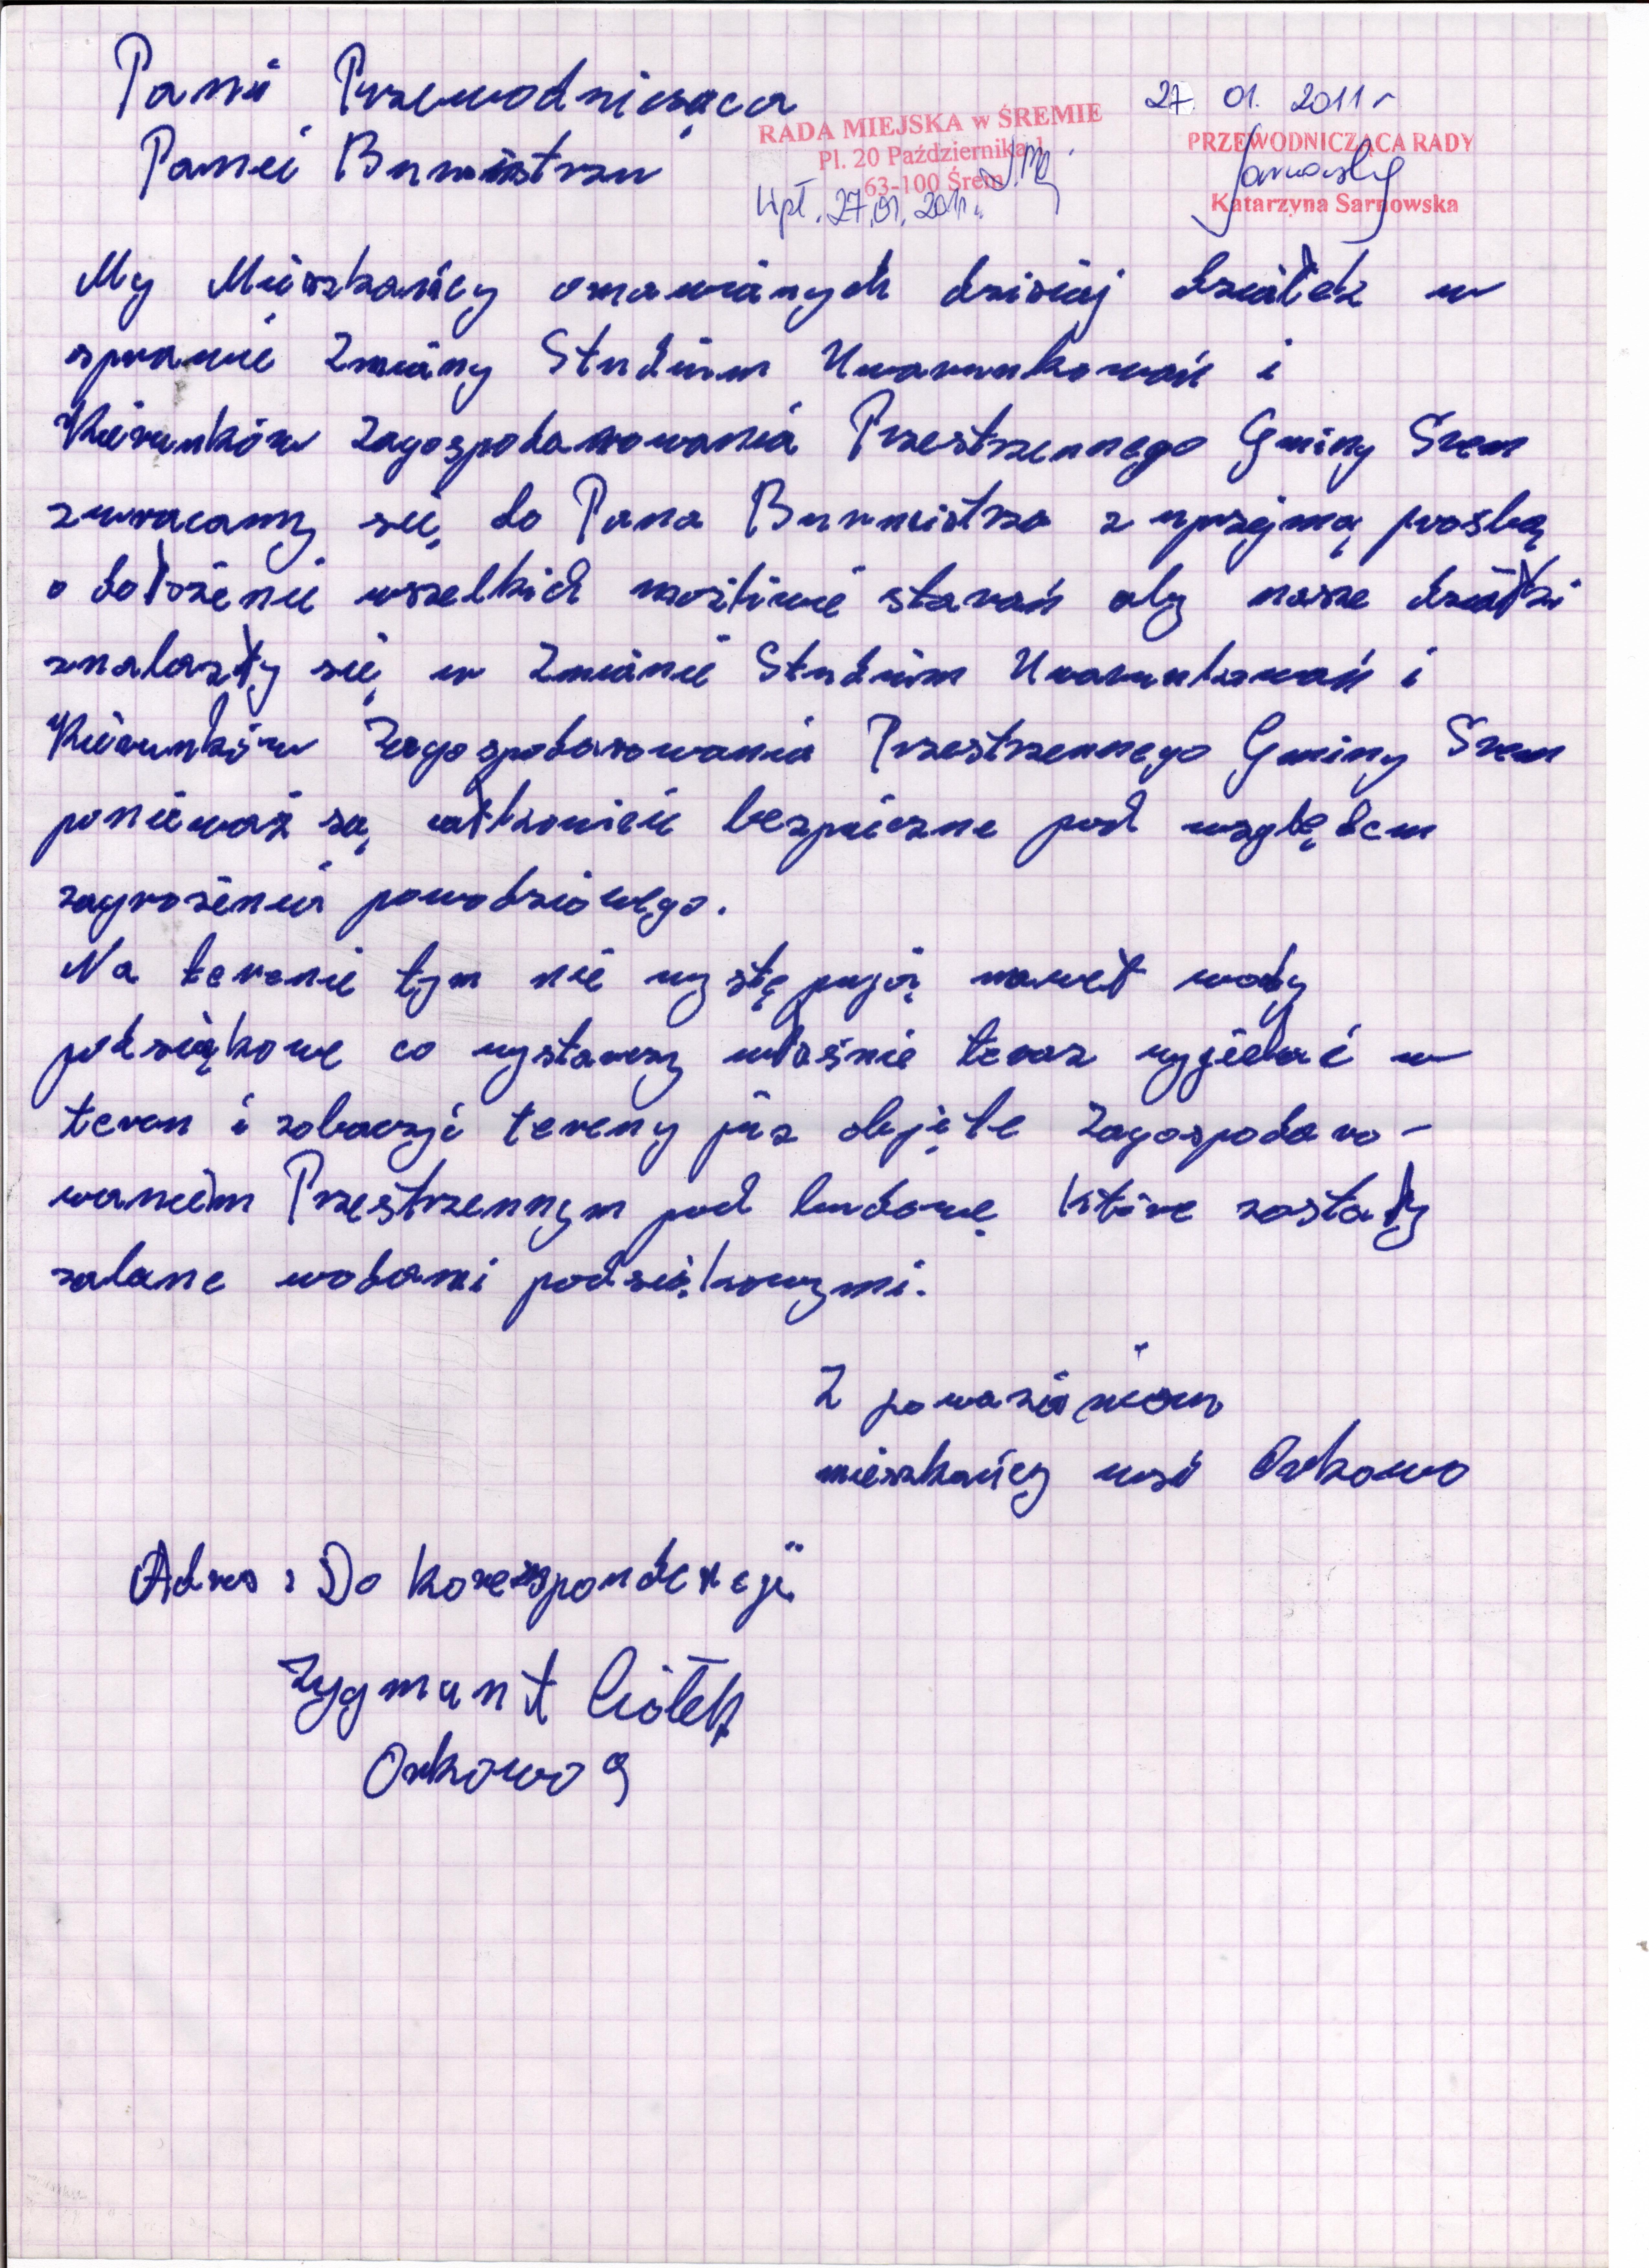 Pani Przewodnicząca
Panie Burmistrzu
27. 01. 2011 r
RADA MIEJSKA w ŚREMIE
Pl. 20 Października 1
63-100 Śrem
Wpł. 27.01.2011 r.
PRZEWODNICZĄCA RADY
Katarzyna Sarnowska
My Mieszkańcy omawianych dzisiaj działek w
sprawie Zmiany Studium Uwarunkowań i
Kierunków Zagospodarowania Przestrzennego Gminy Śrem
zwracamy się do Pana Burmistrza z uprzejmą prośbą
o dołożenie wszelkich możliwie starań aby nasze działki
znalazły się w Zmianie Studium Uwarunkowań i
Kierunków Zagospodarowania Przestrzennego Gminy Śrem
ponieważ są całkowicie bezpieczne pod względem
zagrożenia powodziowego.
Na terenie tym nie występują nawet wody
podsiąkowe co wystarczy właśnie teraz wyjechać w
teren i zobaczyć tereny już objęte Zagospodaro-
waniem Przestrzennym pod budowę które zostały
zalane wodami podsiąkowymi.
Z poważaniem
mieszkańcy wsi Orkowo
Adres : Do korespondencji
Zygmunt Ciołek
Orkowo 9